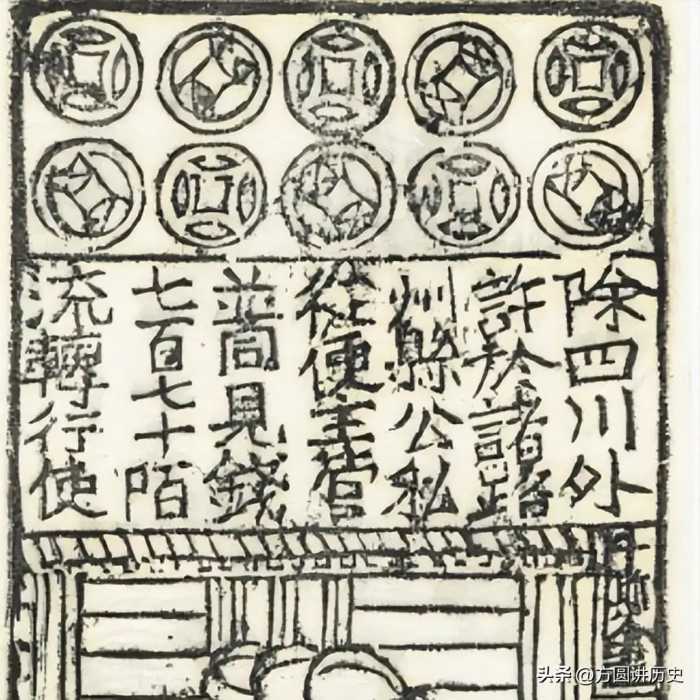 除四川外
許於諸路
州縣公私
從便主管
並同見錢
七百七十陌
流轉行使
头条 @方圆讲历史